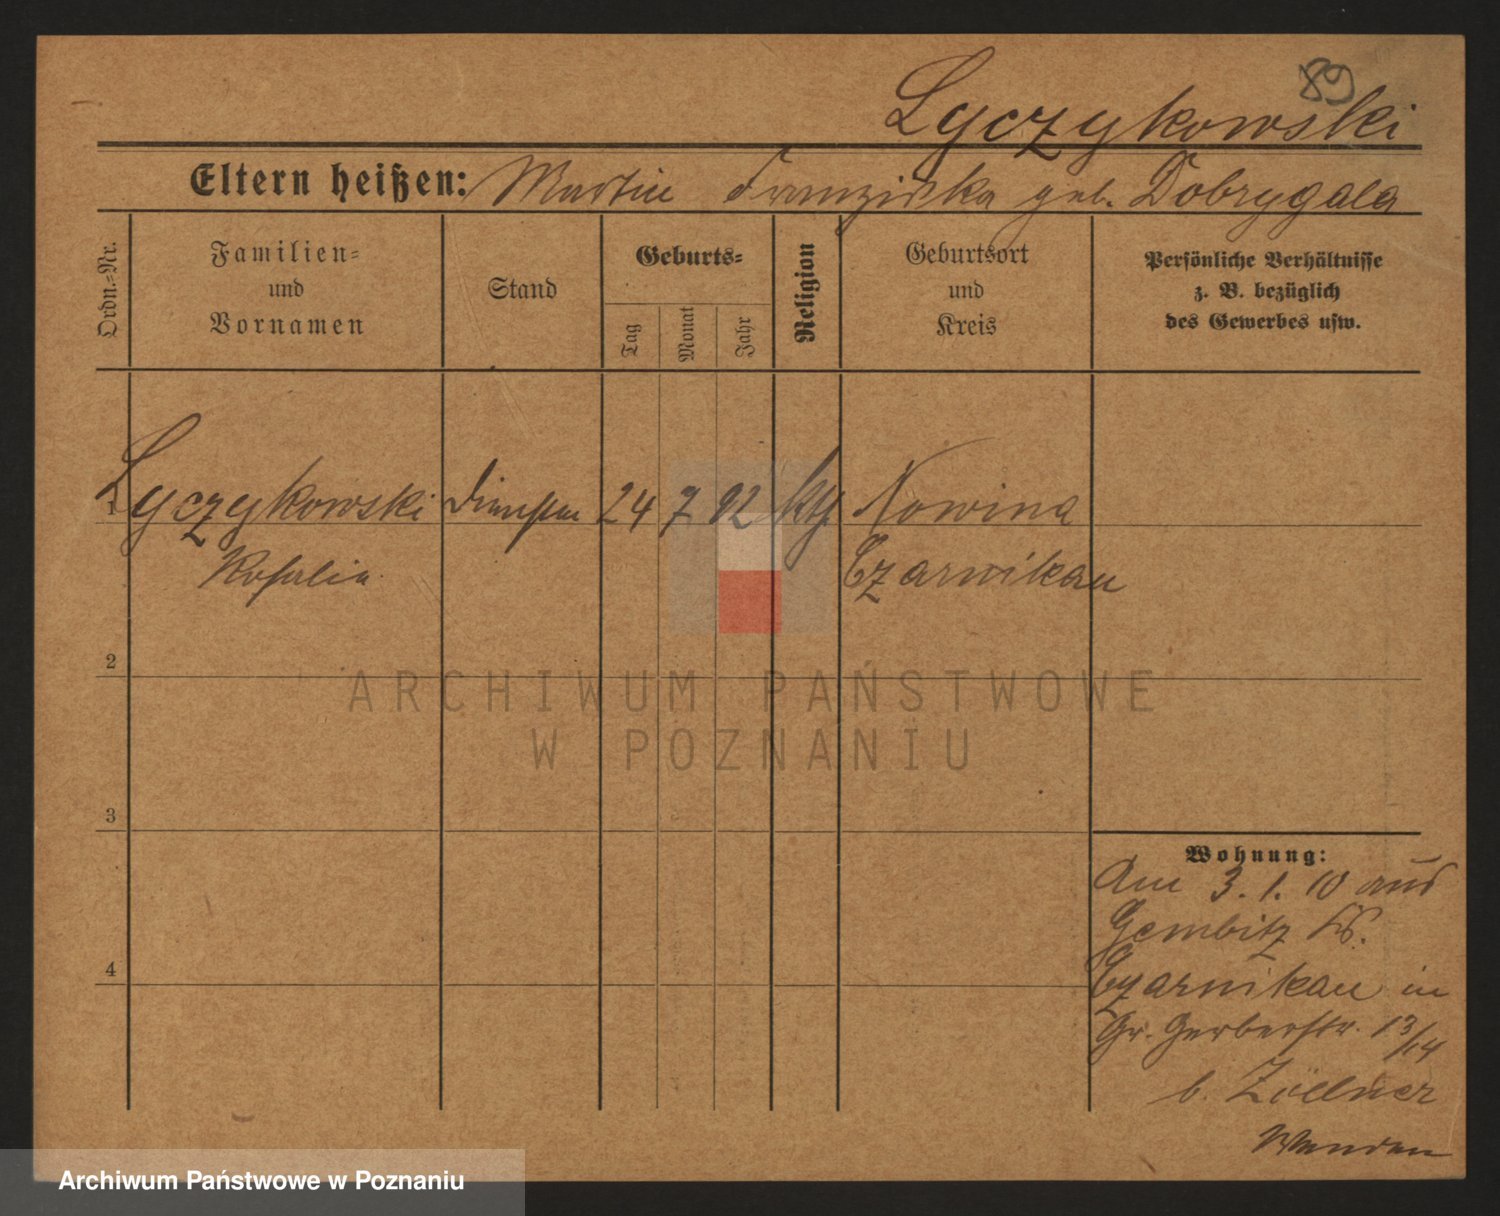 89
Lyczykowski
Eltern heißen: Martin Franziska geb. Dobrygala
Ordn.-Nr.
Familien- und Vornamen
Stand
Geburts-
Tag
Monat
Jahr
Religion
Geburtsort und Kreis
Persönliche Verhältnisse
z. B. bezüglich
des Gewerbes usw.
1 Lyczykowski 24 7 92 kth Nowina
Rosalia Czarnikau
2
3
4
Wohnung:
Am 3.1.10 aus
Gembitz Ks.
Czarnikau in
Gr. Gerberstr. 13/14
b. Zöllner
Wenden
ARCHIWUM PAŃSTWOWE
W POZNANIU
Archiwum Państwowe w Poznaniu